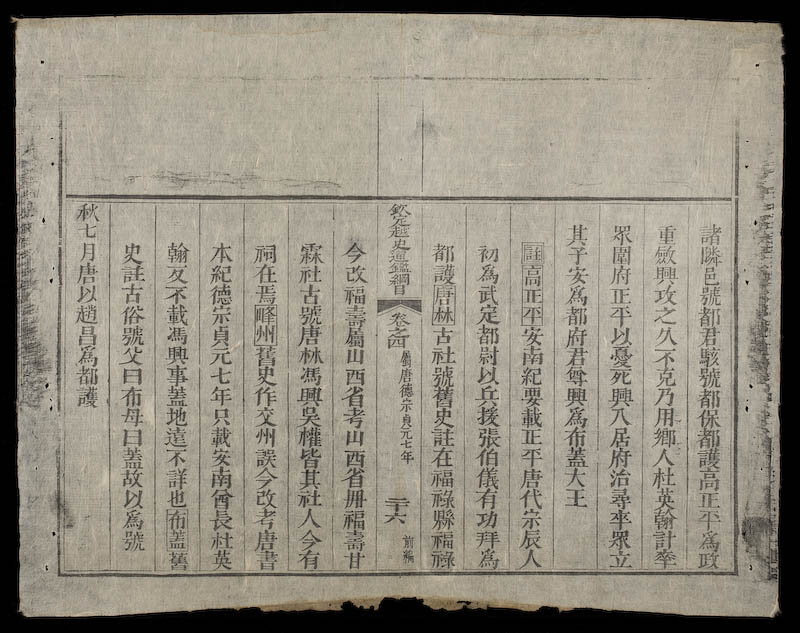 諸隣邑號都君駭號都保都護高正平爲政
重斂興攻之久不克乃用鄉人杜英翰計率
眾圍府正平以憂死興入居府治尋卒眾立
其子安爲都府君尊興爲布蓋大王
註高正平安南紀要載正平唐代宗辰人
初爲武定都尉以兵援張伯儀有功拜爲
都護唐林古社號舊史註在福祿縣福祿
欽定越史通鑑綱目 卷之四 屬唐德宗貞元七年 二十六 前編
今改福壽屬山西省考山西省冊福壽甘
霖社古號唐林馮興吳權皆其社人今有
祠在焉峰州舊史作交州誤今改考唐書
本紀德宗貞元七年只載安南酋長杜英
翰反不載馮興事蓋地遠不詳也布蓋舊
史註古俗號父曰布母曰蓋故以爲號
秋七月唐以趙昌爲都護